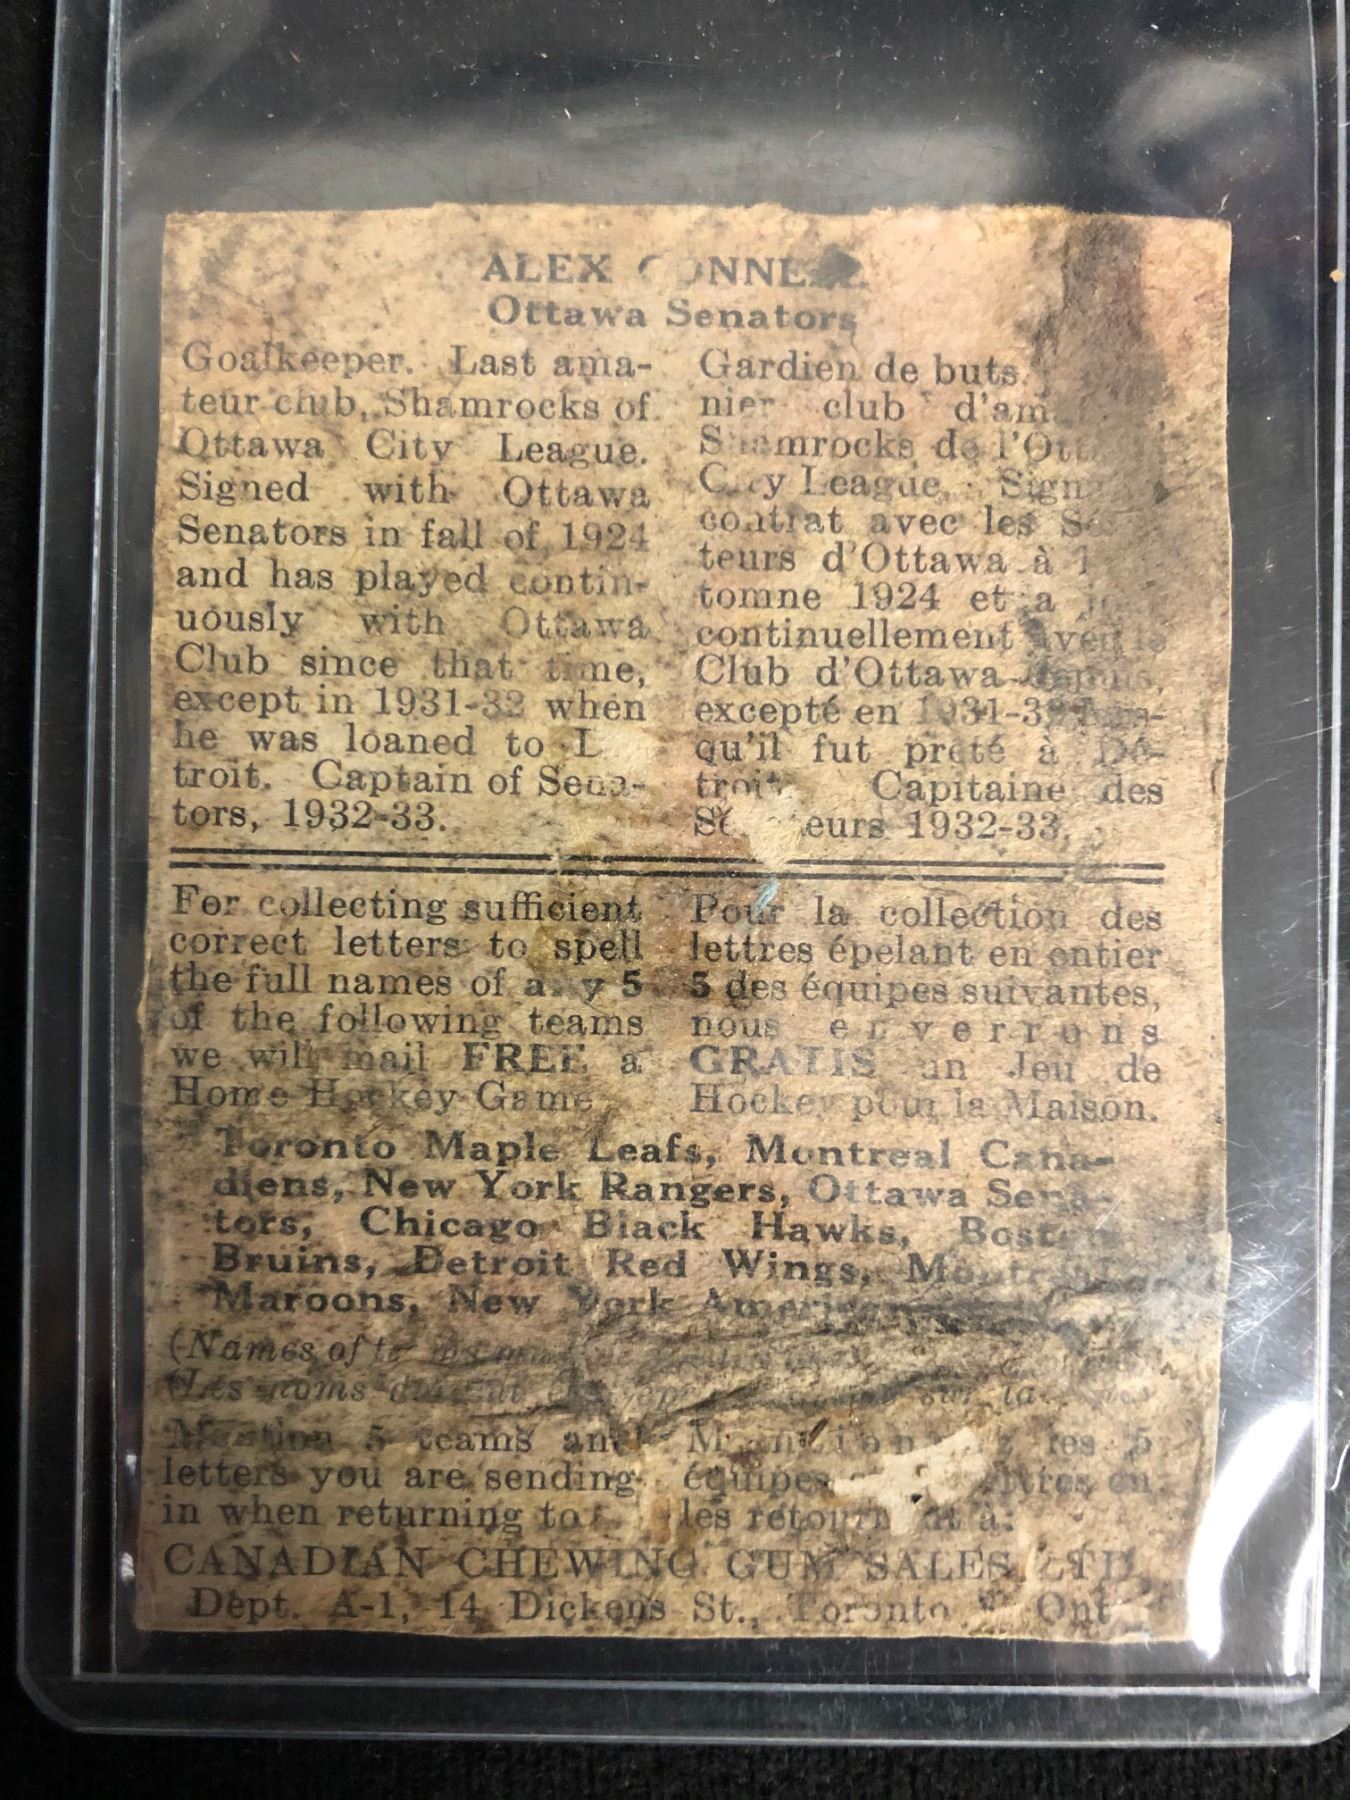 ALEX
Ottawa Senators
Goalkeeper. Last ama-
teur club, Shamrocks of
Ottawa City League.
Signed with Ottawa
Senators in fall of 1924
and has played contin-
uously with Ottawa
Club since that time,
except in 1931-32 when
he was loaned to
troit. Captain of Sena-
tors, 1932-33.
Gardien de buts.
nier club
Shamrocks de
City League.
contrat avec les
teurs d'Ottawa à
tomne 1924 et a
continuellement avec le
Club d'Ottawa depuis,
excepté en 1931-32
qu'il fut prêté à Dé-
troit. Capitaine des
1932-33.
For collecting sufficient
correct letters to spell
the full names of any 5
of the following teams
we will mail FREE a
Home Hockey Game
Pour la collection des
lettres épelant en entier
5 des équipes suivantes,
nous enverrons
GRATIS un Jeu de
Hockey pour la Maison.
Toronto Maple Leafs, Montreal Cana-
diens, New York Rangers, Ottawa Sena-
tors, Chicago Black Hawks, Boston
Bruins, Detroit Red Wings, Montreal
Maroons, New York
(Names of
(Les noms
Mention 5 teams and
letters you are sending
in when returning to
les 5
équipes
les à:
CANADIAN CHEWING GUM SALES LTD.
Dept. A-1, 14 Dickens St., Toronto Ont.